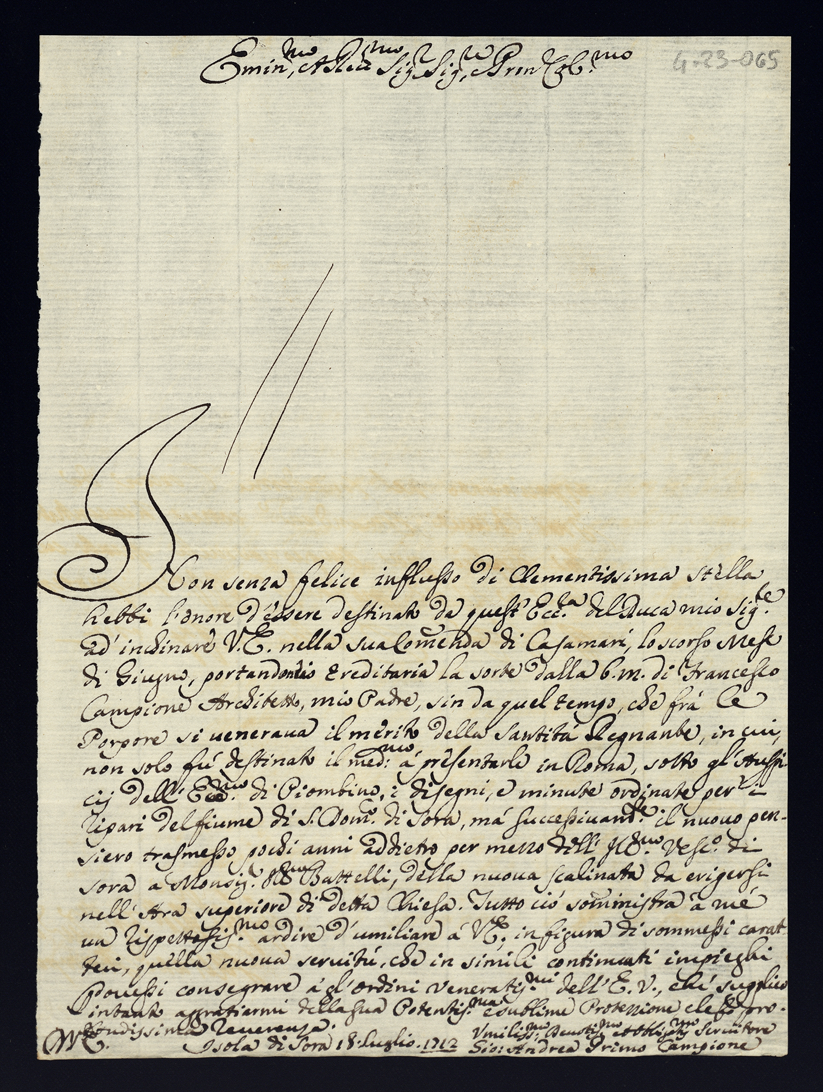 Emin.mo, e Rev.mo Sig.r Sig.r, e Pron Col.mo
4-23-065
Non senza felice influsso di Clementissima stella
hebbi l'onore d'essere destinato da quest'Ecc.za del Duca mio Sig.re
ad' inchinare V.E. nella sua Comenda di Casamari, lo scorso Mese
di Giugno, portandomi ereditaria la sorte dalla b.m. di Francesco
Campione Architetto, mio Padre, sin da quel tempo, che frà le
Porpore si venerava il merito della Santità Regnante, in cui,
non solo fù destinato il med.mo à presentarle in Roma, sotto gl'Auspi-
cij dell'Ecc.mo di Piombino, i disegni, e minute ordinate per i
ripari del fiume di S. Dom.co di Sora, mà successivam.te il nuovo pen-
siero trasmesso pochi anni addietro per mezzo dell' Ill.mo Vesc.o di
Sora a Monsig.r Ill.mo Battelli, della nuova scalinata da erigersi
nell'Ara superiore di detta Chiesa. Tutto ciò somministra à mè
un rispettosis.mo ardire d'umiliare à V.E. in figura di sommessi carat-
teri, quella nuova servitù, che in simili continuati impieghi
potessi consegrare à gl'ordini veneratis.mi dell'E.V., che supplico
intanto aggratiarmi della sua Potentis.ma e sublime Protezione, e le fò pro-
fondissima reverenza.
V.E. Isola di Sora 18. luglio. 1712 Umiliss.mo Devotis.mo et Obblig.mo Servitore
Gio: Andrea Primo Campione